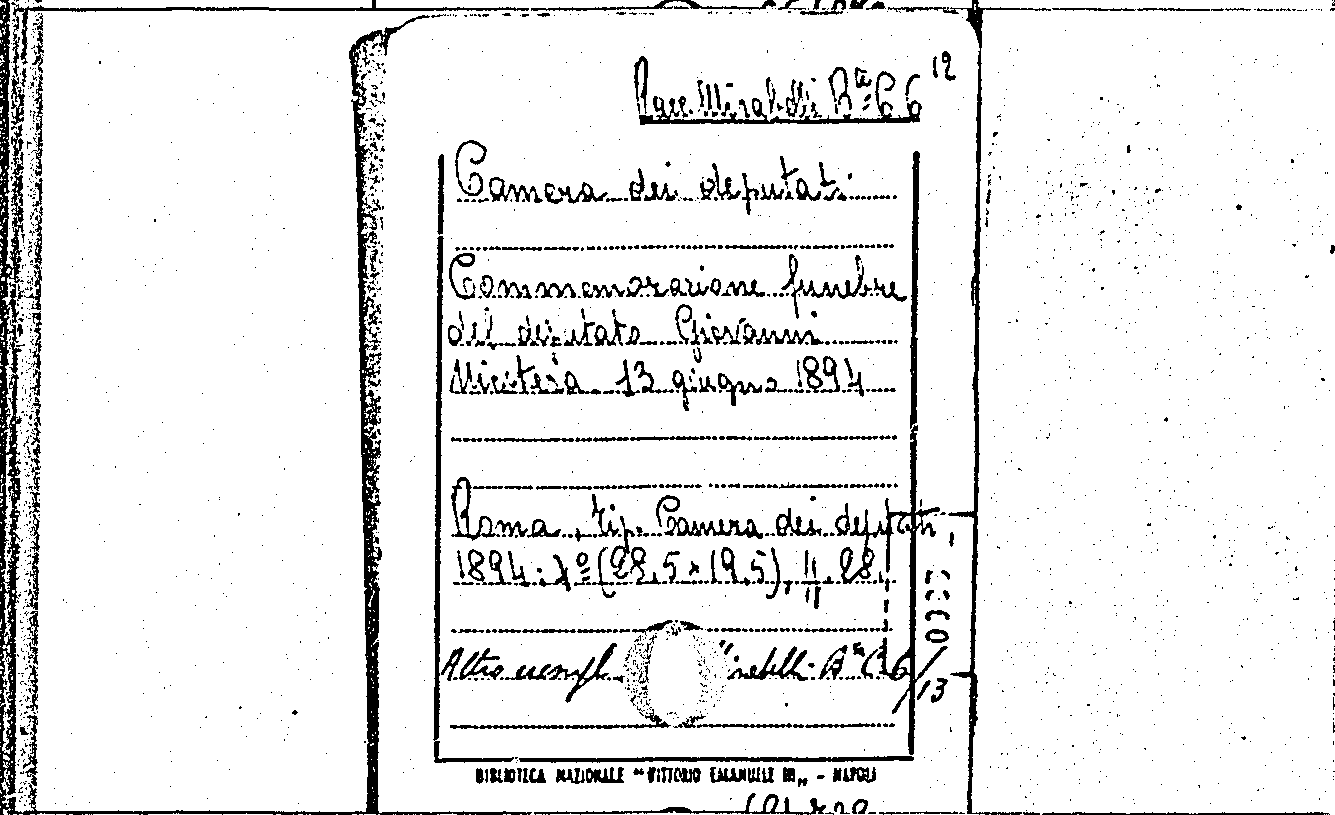 Racc. Mirabelli Bta C 6 12
Camera dei deputati
Commemorazione funebre
del deputato Giovanni
Nicotera 13 giugno 1894
Roma, tip. Camera dei deputati,
1894: 4º (28,5 x 19,5), 28.
Altro esempl. Bta C 6/13
BIBLIOTECA NAZIONALE "VITTORIO EMANUELE III„ - NAPOLI